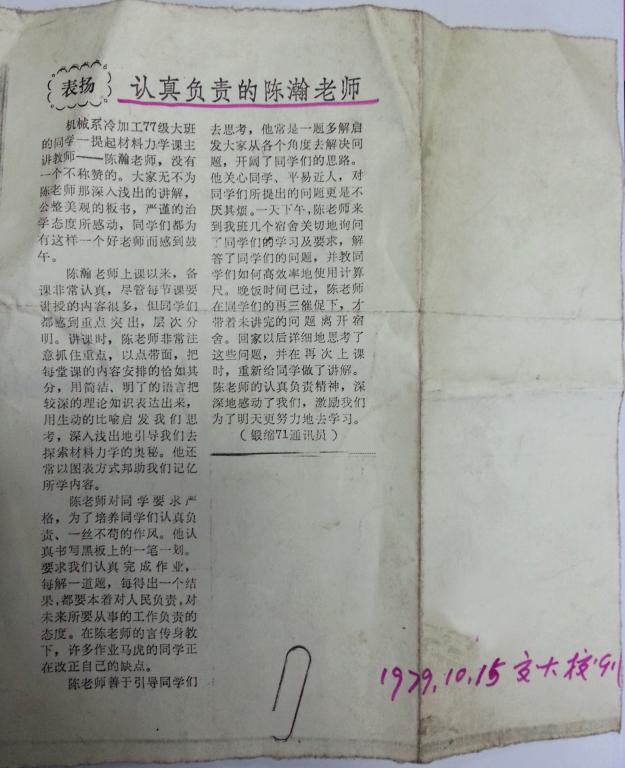 表扬
认真负责的陈瀚老师
机械系冷加工77级大班
的同学一提起材料力学课主
讲教师——陈瀚老师，没有
一个不称赞的。大家无不为
陈老师那深入浅出的讲解，
公整美观的板书，严谨的治
学态度所感动，同学们都为
有这样一个好老师而感到鼓
午。
陈瀚老师上课以来，备
课非常认真，尽管每节课要
讲授的内容很多，但同学们
都感到重点突出，层次分
明。讲课时，陈老师非常注
意抓住重点，以点带面，把
每堂课的内容安排的恰如其
分，用简洁、明了的语言把
较深的理论知识表达出来，
用生动的比喻启发我们思
考，深入浅出地引导我们去
探索材料力学的奥秘。他还
常以图表方式邦助我们记忆
所学内容。
陈老师对同学要求严
格，为了培养同学们认真负
责、一丝不苟的作风。他认
真书写黑板上的一笔一划。
要求我们认真完成作业，
每解一道题，每得出一个结
果，都要本着对人民负责，对
未来所要从事的工作负责的
态度。在陈老师的言传身教
下，许多作业马虎的同学正
在改正自己的缺点。
陈老师善于引导同学们
去思考，他常是一题多解启
发大家从各个角度去解决问
题，开阔了同学们的思路。
他关心同学、平易近人，对
同学们所提出的问题更是不
厌其烦。一天下午，陈老师来
到我班几个宿舍关切地询问
了同学们的学习及要求，解
答了同学们的问题，并教同
学们如何高效率地使用计算
尺。晚饭时间已过，陈老师
在同学们的再三催促下，才
带着未讲完的问题离开宿
舍。回家以后详细地思考了
这些问题，并在再次上课
时，重新给同学做了讲解。
陈老师的认真负责精神，深
深地感动了我们，激励我们
为了明天更努力地去学习。
（锻缩71通讯员）
1979.10.15 交大校刊